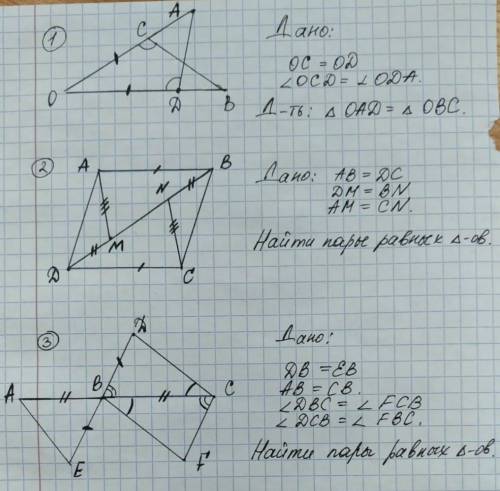 1
A
C
O
D
B
Дано:
OC = OD
∠OCD = ∠ODA.
Д-ть: △ OAD = △ OBC.
2
A
B
N
M
D
C
Дано: AB = DC
DM = BN
AM = CN.
Найти пары равных △-ов.
3
D
A
B
C
E
F
Дано:
DB = EB
AB = CB.
∠DBC = ∠FCB
∠DCB = ∠FBC.
Найти пары равных △-ов.